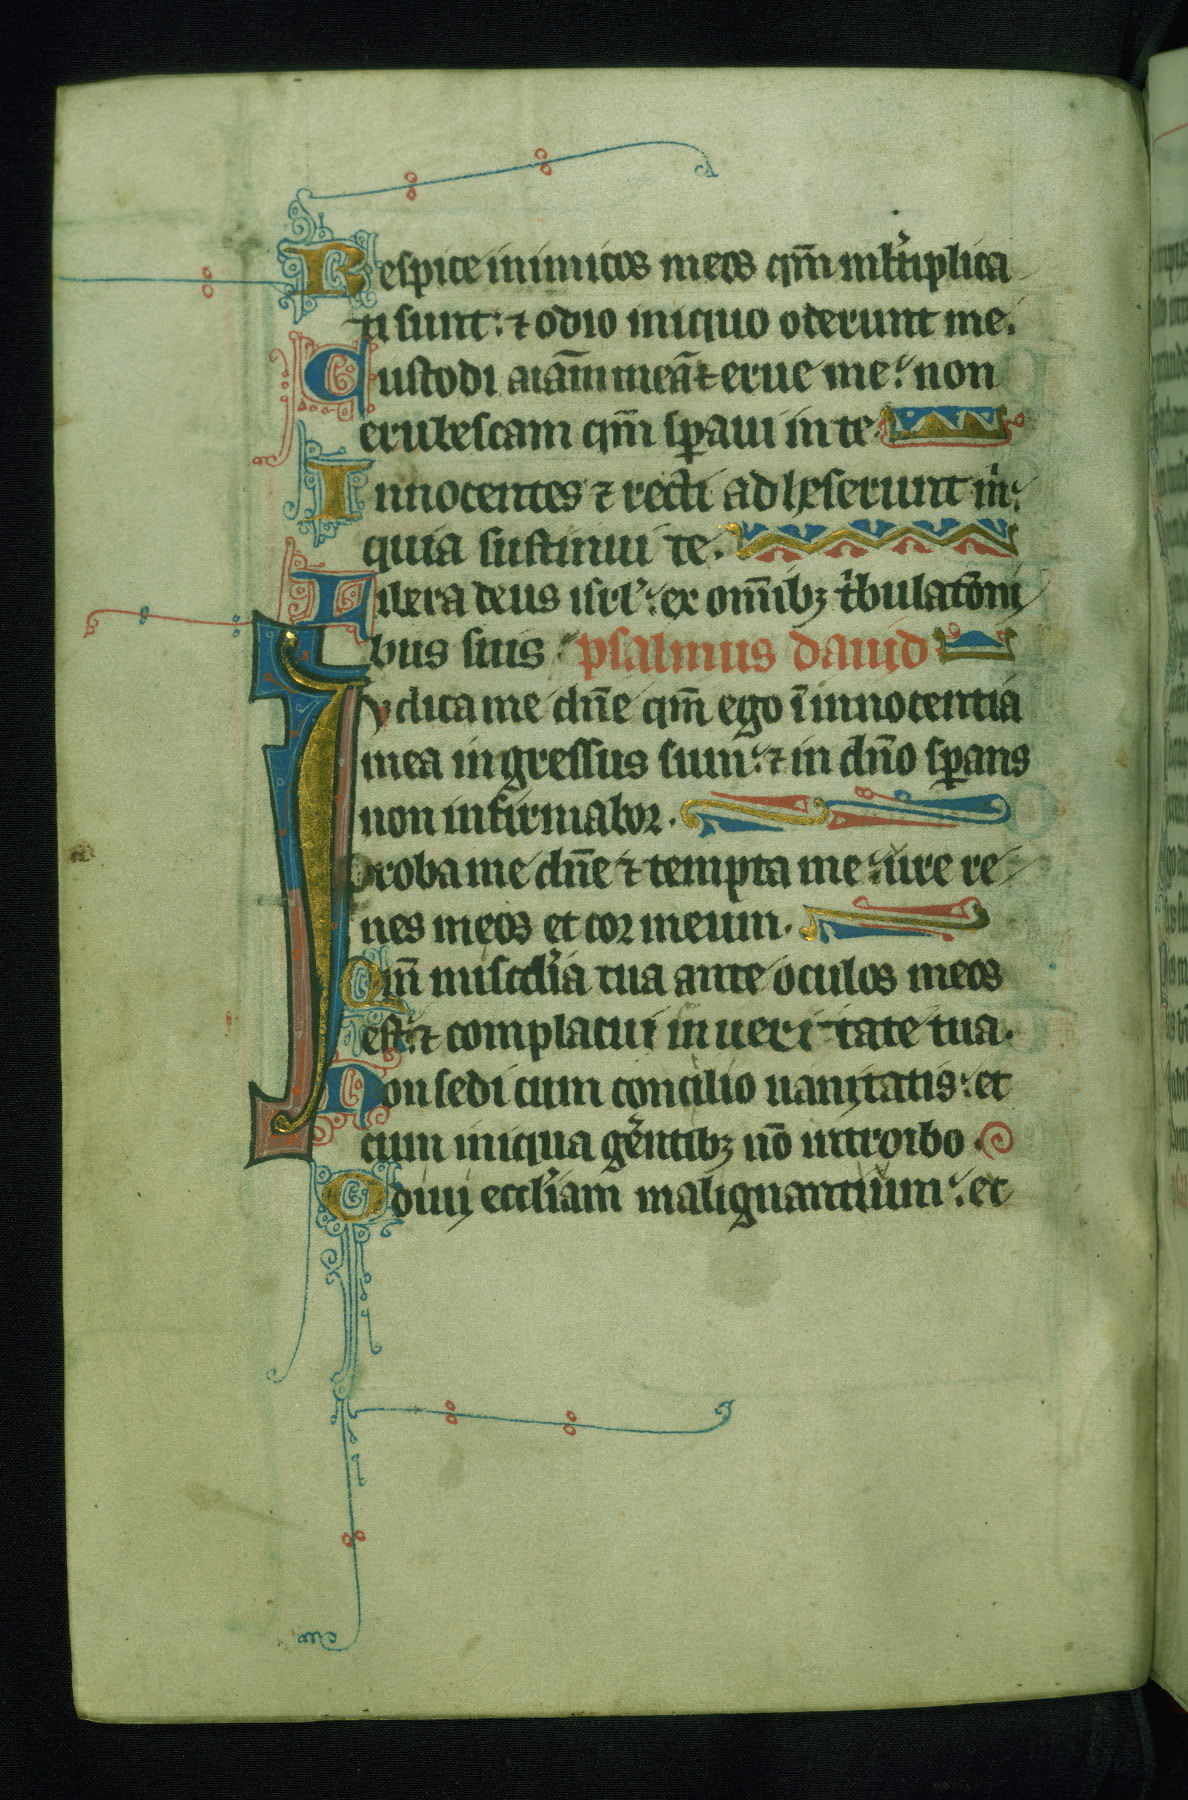 Respice inimicos meos qm̄ ml̄tiplica
ti sunt: ⁊ odio iniquo oderunt me.
Custodi aīam meā ⁊ erue me: non
erubescam qm̄ sꝑaui in te
Innocentes ⁊ recti adheserunt m̄:
quia sustinui te.
Libera deus isrl̄: ex om̄ibꝫ t̄bulatōni
bus suis: psalmus dauid
Iudica me dn̄e qm̄ ego ī innocentia
mea ingressus sum: ⁊ in dn̄o sꝑans
non infirmabor.
Proba me dn̄e ⁊ tempta me: ure re
nes meos et coꝛ meum.
Qm̄ misc̄dia tua ante oculos meos
est: ⁊ complacui in ueritate tua.
Non sedi cum concilio uanitatis: et
cum iniqua gerentibꝫ nō introibo.
Odiui eccl̄iam malignantium: et